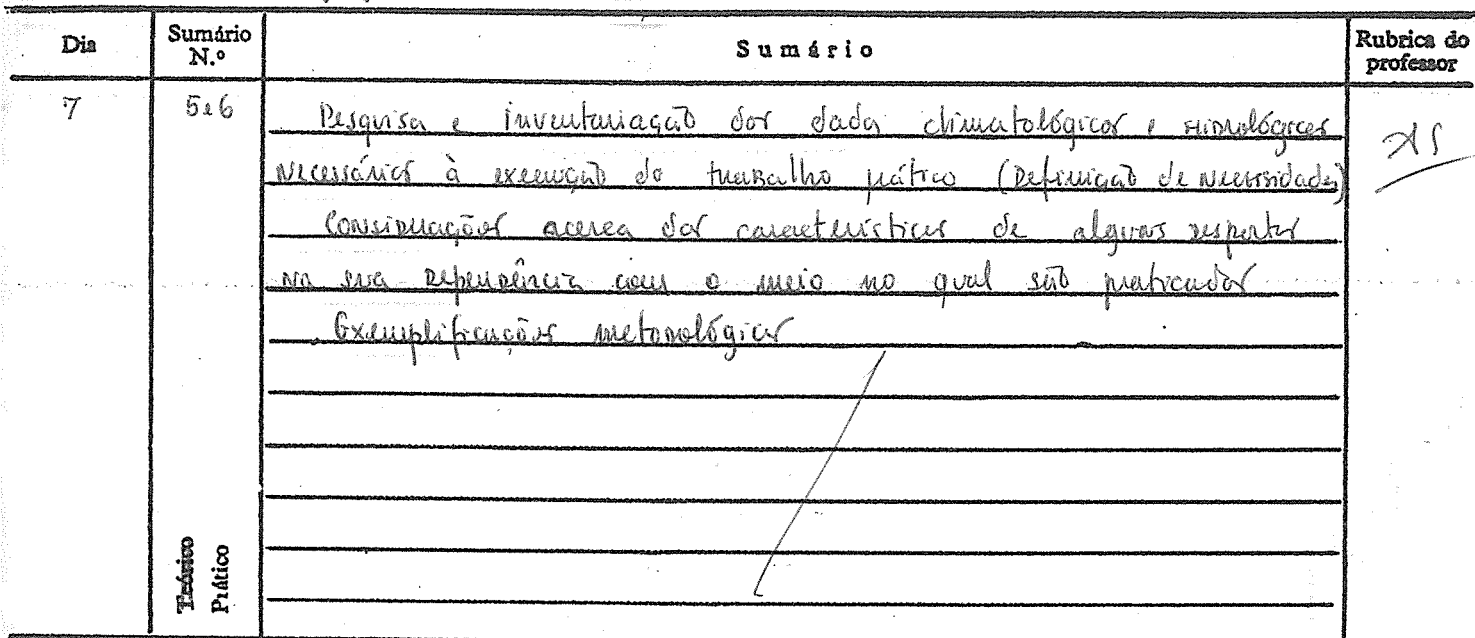 Dia
Sumário N.º
Sumário
Rubrica do professor
7
5 e 6
Pesquisa e inventariação dos dados climatológicos e hidrológicos
necessários à execução do trabalho prático (Definição de necessidades)
Considerações acerca das características de alguns desportos
na sua dependência com o meio no qual são praticados
Exemplificações metodológicas
Teórico
Prático